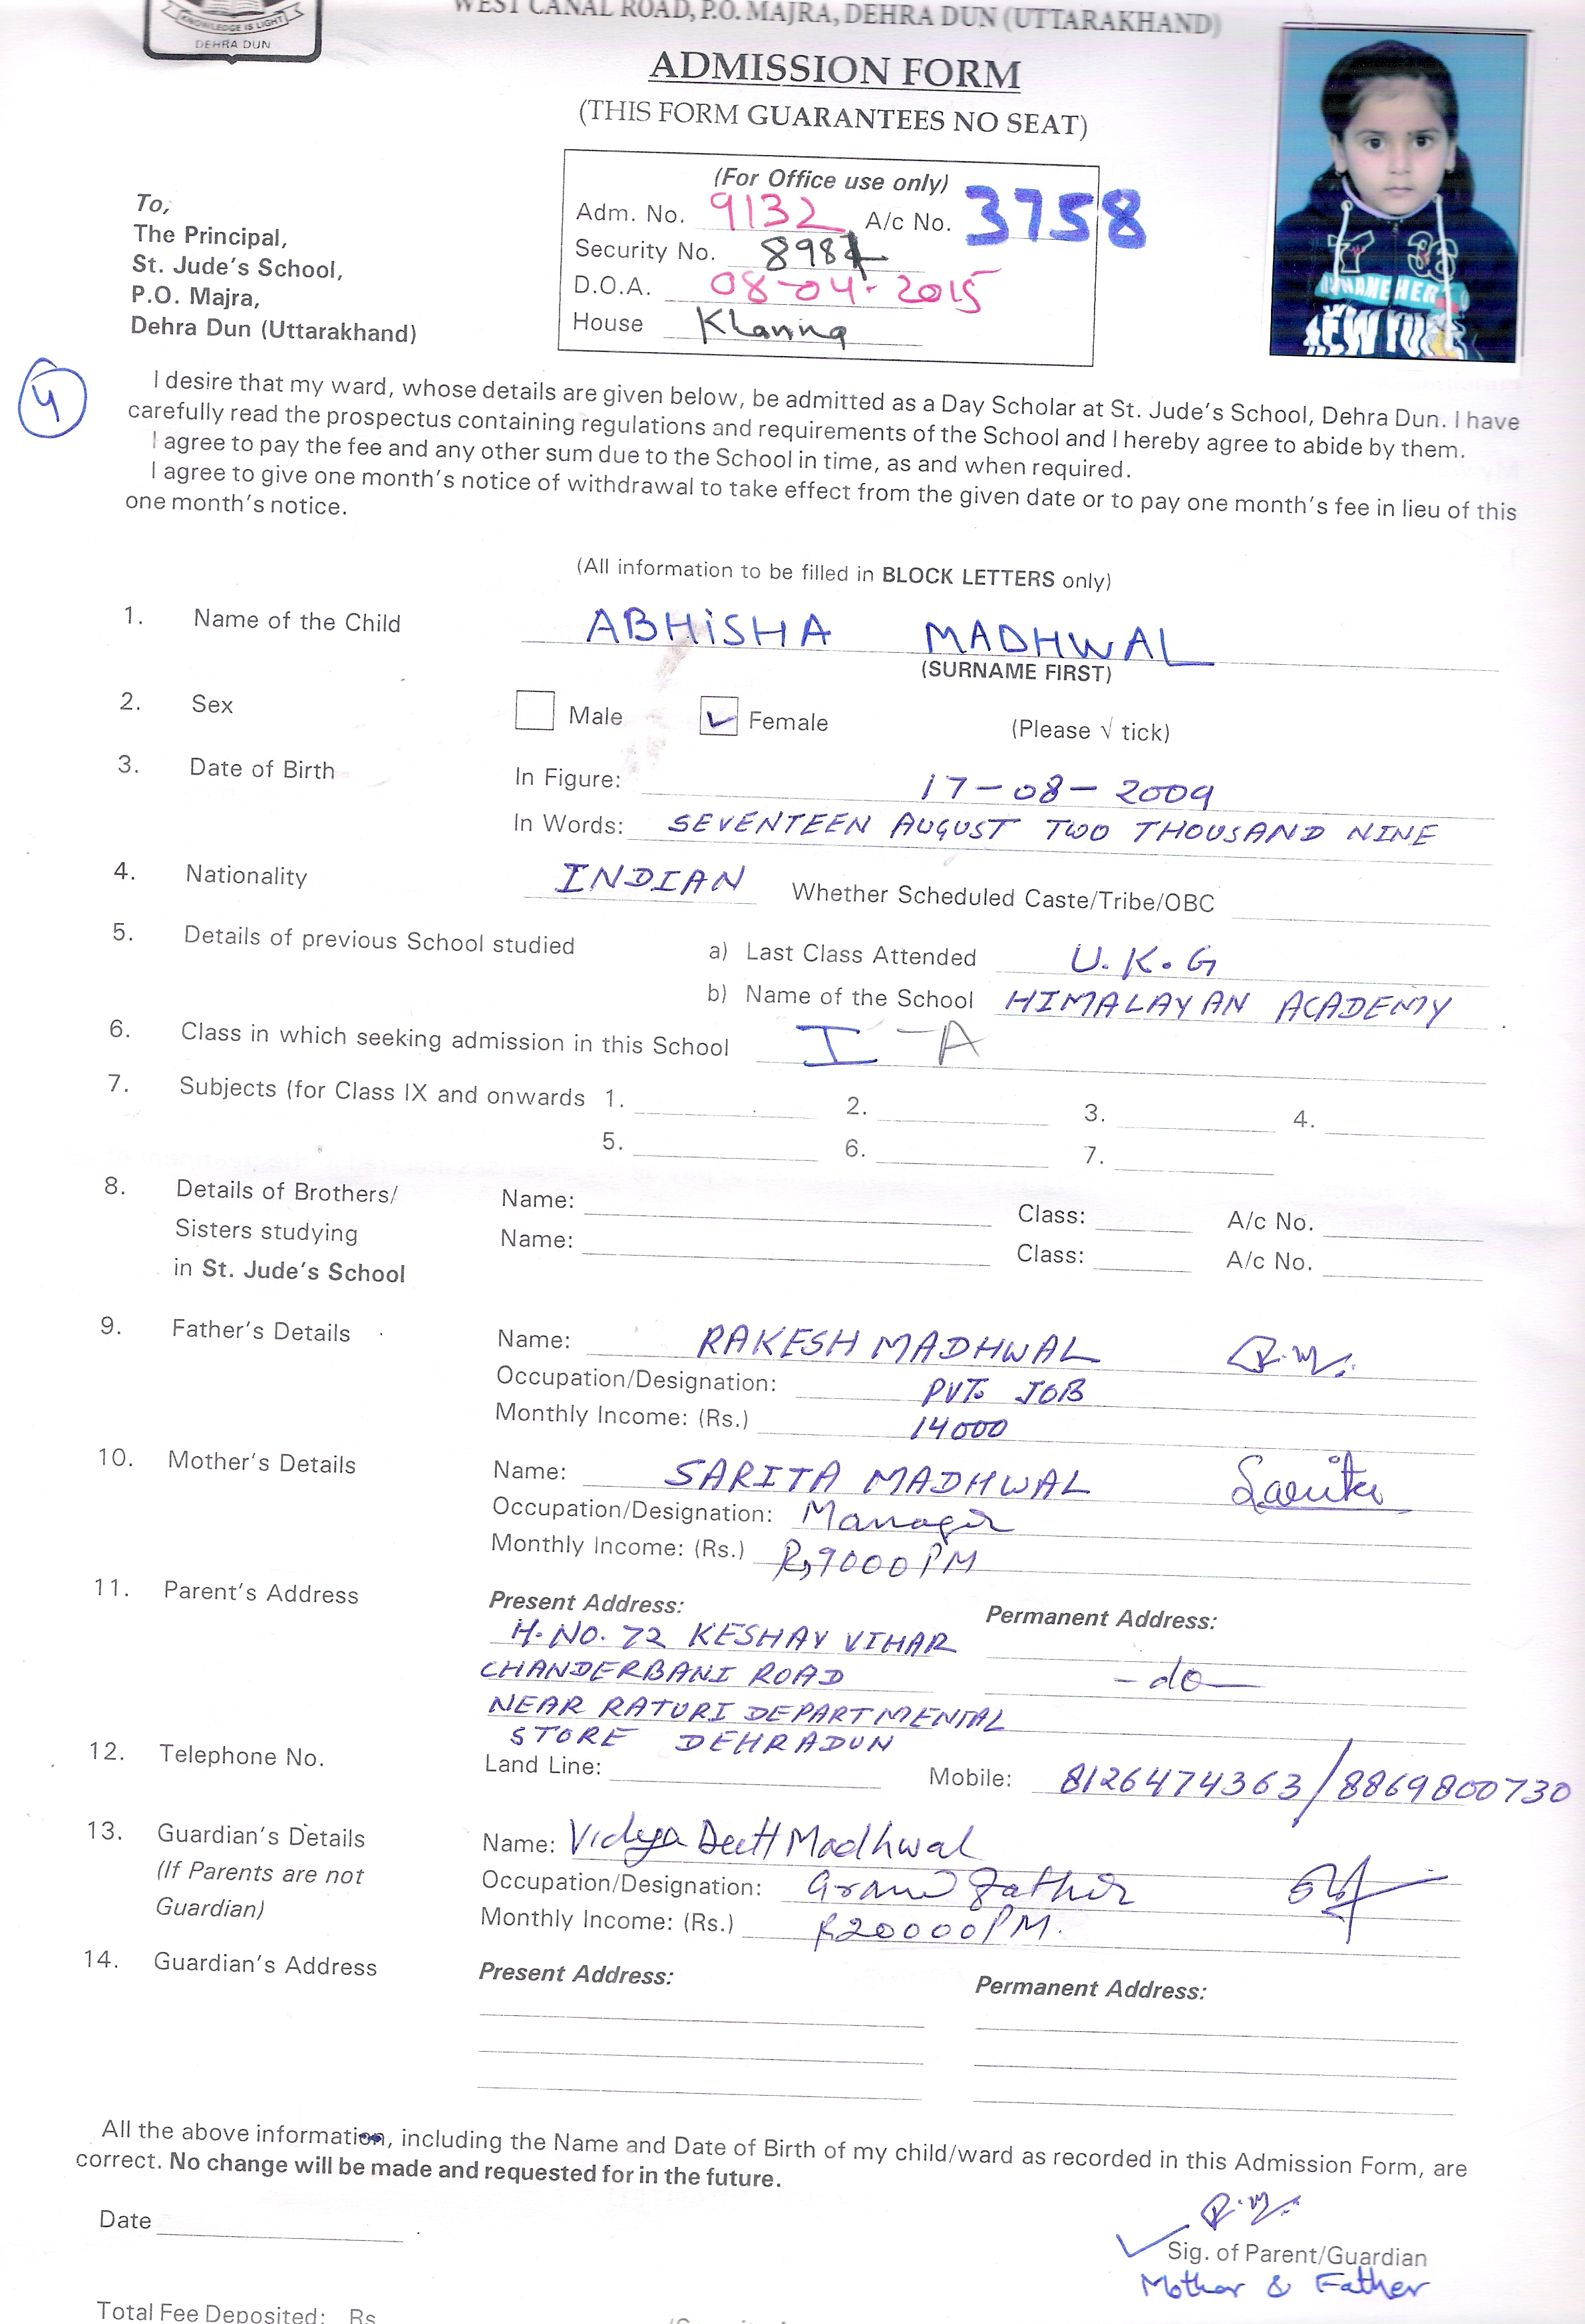 KNOWLEDGE IS LIGHT
DEHRA DUN
WEST CANAL ROAD, P.O. MAJRA, DEHRA DUN (UTTARAKHAND)
ADMISSION FORM
(THIS FORM GUARANTEES NO SEAT)
(For Office use only)
Adm. No. 9132 A/c No. 3758
Security No. 898
D.O.A. 08-04-2015
House
To,
The Principal,
St. Jude's School,
P.O. Majra,
Dehra Dun (Uttarakhand)
4
I desire that my ward, whose details are given below, be admitted as a Day Scholar at St. Jude's School, Dehra Dun. I have
carefully read the prospectus containing regulations and requirements of the School and I hereby agree to abide by them.
I agree to pay the fee and any other sum due to the School in time, as and when required.
I agree to give one month's notice of withdrawal to take effect from the given date or to pay one month's fee in lieu of this
one month's notice.
(All information to be filled in BLOCK LETTERS only)
1. Name of the Child ABHISHA MADHWAL
(SURNAME FIRST)
2. Sex Male Female (Please √ tick)
3. Date of Birth In Figure: 17-08-2009
In Words: SEVENTEEN AUGUST TWO THOUSAND NINE
4. Nationality INDIAN Whether Scheduled Caste/Tribe/OBC
5. Details of previous School studied a) Last Class Attended U.K.G
b) Name of the School HIMALAYAN ACADEMY
6. Class in which seeking admission in this School I -A
7. Subjects (for Class IX and onwards 1. 2. 3. 4.
5. 6. 7.
8. Details of Brothers/ Name: Class: A/c No.
Sisters studying Name: Class: A/c No.
in St. Jude's School
9. Father's Details Name: RAKESH MADHWAL R.M.
Occupation/Designation: PVT. JOB
Monthly Income: (Rs.) 14000
10. Mother's Details Name: SARITA MADHWAL Sarita
Occupation/Designation: Manager
Monthly Income: (Rs.) Rs 9000 PM
11. Parent's Address Present Address: Permanent Address:
H.NO. 72 KESHAV VIHAR
CHANDERBANI ROAD -do-
NEAR RATURI DEPARTMENTAL
STORE DEHRADUN
12. Telephone No. Land Line: Mobile: 8126474363/8869800730
13. Guardian's Details Name: Vidya Dutt Madhwal
(If Parents are not Occupation/Designation: Grand Father
Guardian) Monthly Income: (Rs.) Rs 20000 PM.
14. Guardian's Address Present Address: Permanent Address:
All the above information, including the Name and Date of Birth of my child/ward as recorded in this Admission Form, are
correct. No change will be made and requested for in the future.
Date R.M.
Sig. of Parent/Guardian
Mother & Father
Total Fee Deposited: Rs